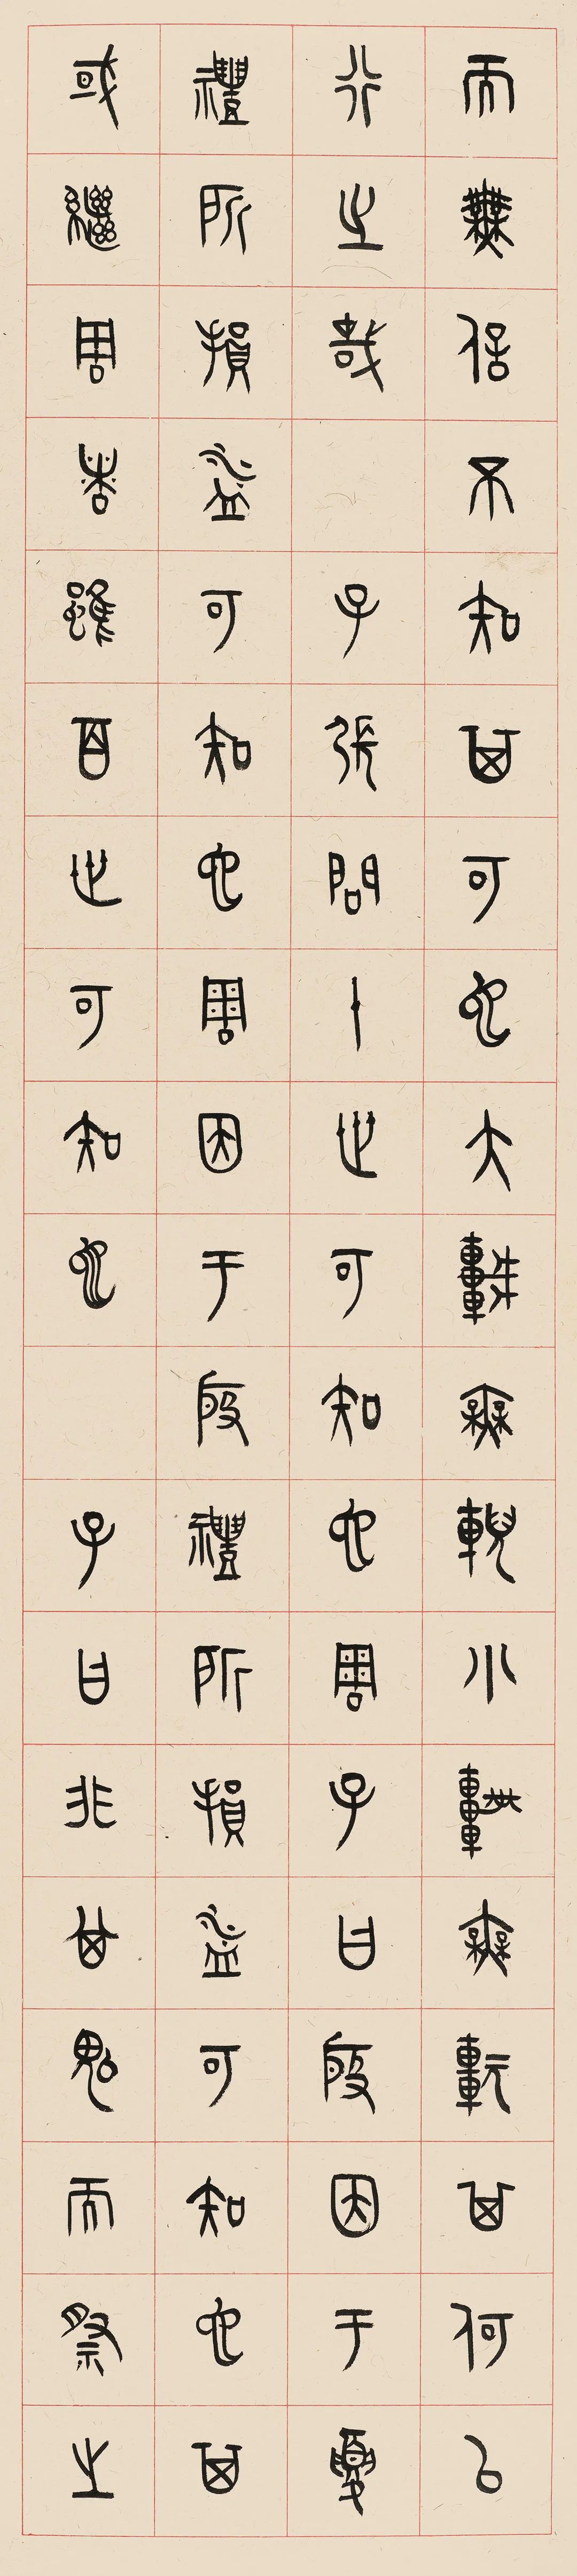 而無信不知其可也大車無輗小車無軏其何以
行之哉 子張問十世可知也周子曰殷因于夏
禮所損益可知也周因于殷禮所損益可知也其
或繼周者雖百世可知也 子曰非其鬼而祭之